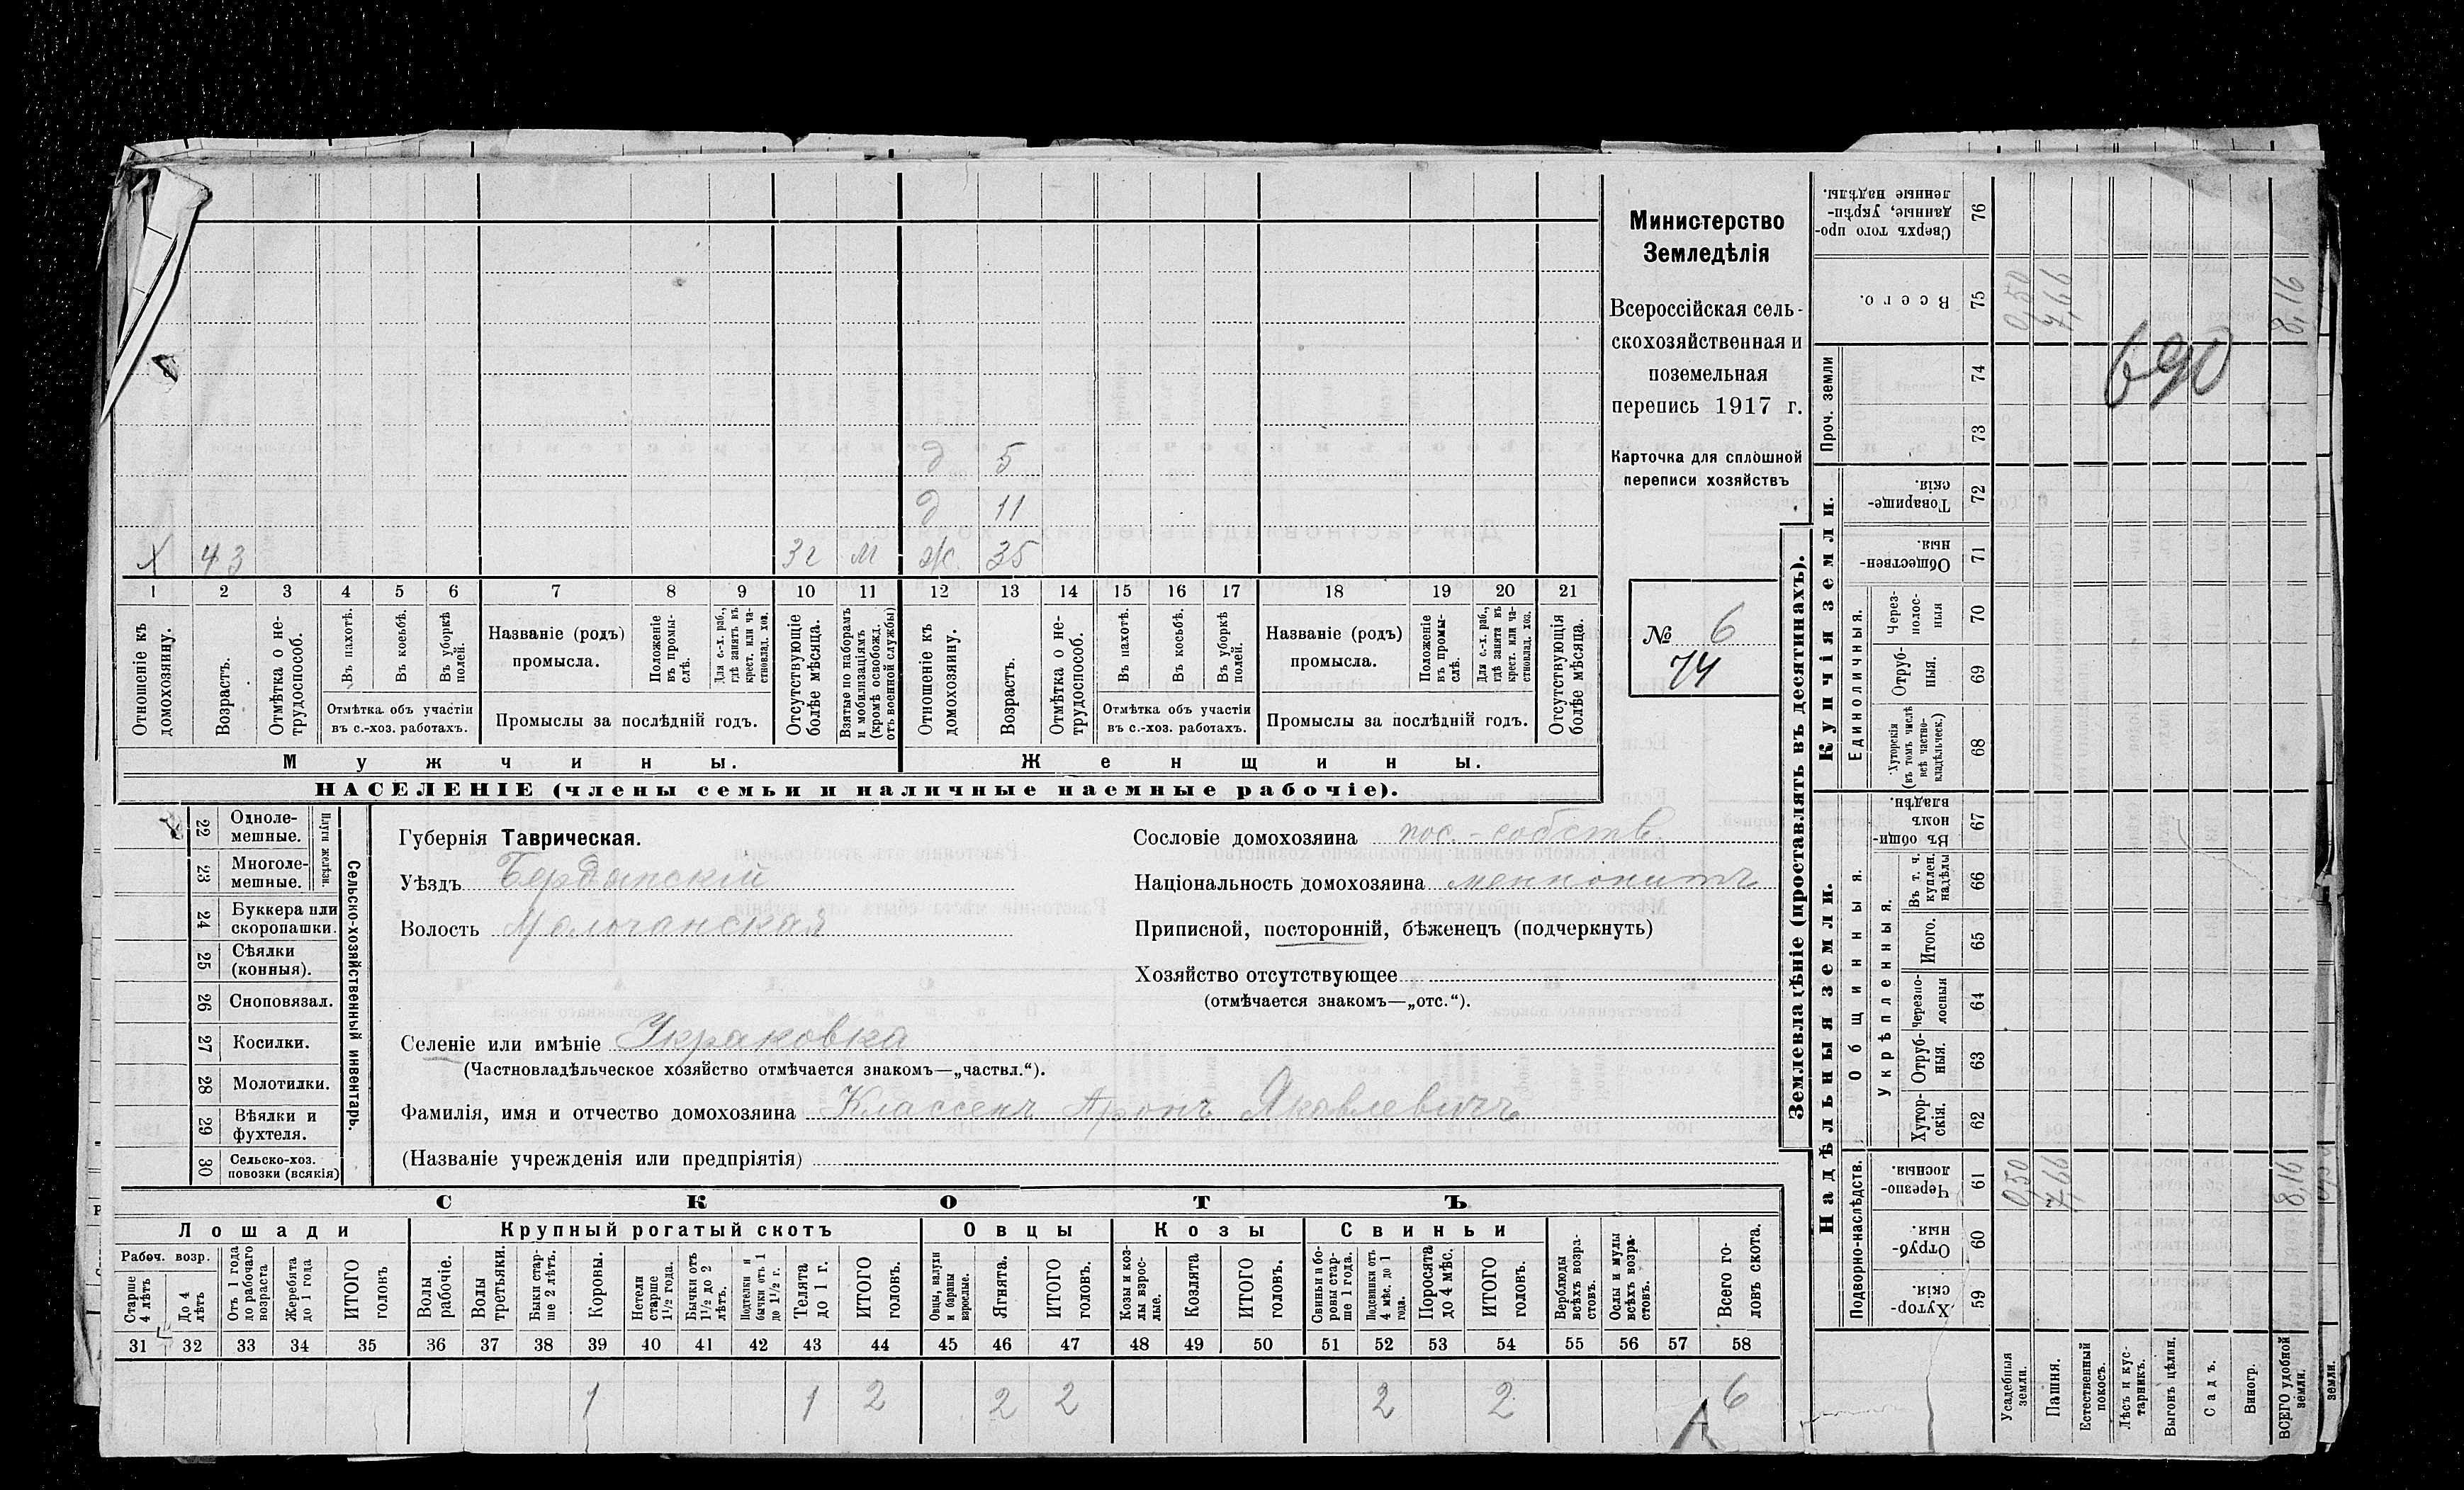 д 5
д 11
х 43 3 г м ж. 35
1 2 3 4 5 6 7 8 9 10 11 12 13 14 15 16 17 18 19 20 21
Отношеніе къ домохозяину.
Возрастъ.
Отмѣтка о не-
трудоспособ.
Въ пахотѣ.
Въ косьбѣ.
Въ уборкѣ полей.
Отмѣтка объ участіи
въ с.-хоз. работахъ.
Названіе (родъ)
промысла.
Положеніе
въ промы-
слѣ.
Для с.-х. раб.,
гдѣ занятъ въ
крест. или ча-
стновлад. хоз.
Промыслы за послѣдній годъ.
Отсутствующіе
болѣе мѣсяца.
Взятые по наборамъ
и мобилизаціямъ
(кромѣ освобожд.
отъ военной службы)
Отношеніе къ
домохозяину.
Возрастъ.
Отмѣтка о не-
трудоспособ.
Въ пахотѣ.
Въ косьбѣ.
Въ уборкѣ
полей.
Отмѣтка объ участіи
въ с.-хоз. работахъ.
Названіе (родъ)
промысла.
Положеніе
въ промы-
слѣ.
Для с.-х. раб.,
гдѣ занята въ
крест. или ча-
стновлад. хоз.
Промыслы за послѣдній годъ.
Отсутствующія
болѣе мѣсяца.
Мужчины.
Женщины.
НАСЕЛЕНІЕ (члены семьи и наличные наемные рабочіе).
Министерство
Земледѣлія
Всероссійская сель-
скохозяйственная и
поземельная
перепись 1917 г.
Карточка для сплошной
переписи хозяйствъ
№ 6
74
22 Одноле-
мешные.
23 Многоле-
мешные.
Плуги желѣзн.
24 Буккера или
скоропашки.
25 Сѣялки
(конныя).
26 Сноповязал.
27 Косилки.
28 Молотилки.
29 Вѣялки и
фухтеля.
30 Сельско-хоз.
повозки (всякія)
Сельско-хозяйственный инвентарь.
Губернія Таврическая.
Уѣздъ Бердянскій
Волость Молочанская
Сословіе домохозяина пос.-собств.
Національность домохозяина меннонитъ
Приписной, посторонній, бѣженецъ (подчеркнуть)
Хозяйство отсутствующее
(отмѣчается знакомъ—„отс.“).
Селеніе или имѣніе Укракoвка
(Частновладѣльческое хозяйство отмѣчается знакомъ—„частвл.“).
Фамилія, имя и отчество домохозяина Классенъ Аронъ Яковлевичъ
(Названіе учрежденія или предпріятія)
СКОТЪ
Лошади
Крупный рогатый скотъ
Овцы
Козы
Свиньи
Рабоч. возр.
Старше
4 лѣтъ
До 4
лѣтъ
Отъ 1 года
до рабочаго
возраста
Жеребята
до 1 года
ИТОГО
головъ
Волы
рабочіе.
Волы
третьяки.
Быки стар-
ше 2 лѣтъ.
Коровы.
Нетели
старше
1½ года.
Бычки отъ
1½ до 2
лѣтъ.
Подтелки и
бычки отъ 1
до 1½ г.
Телята
до 1 г.
ИТОГО
головъ.
Овцы, валухи
и бараны
взрослые.
Ягнята.
ИТОГО
головъ.
Козы и коз-
лы взрос-
лые.
Козлята
ИТОГО
головъ.
Свиньи и бо-
ровы стар-
ше 1 года.
Подсвинки отъ
4 мѣс. до 1
года.
Поросята
до 4 мѣс.
ИТОГО
головъ.
Верблюды
всѣхъ возра-
стовъ.
Ослы и мулы
всѣхъ возра-
стовъ.
Всего го-
ловъ скота.
31 32 33 34 35 36 37 38 39 40 41 42 43 44 45 46 47 48 49 50 51 52 53 54 55 56 57 58
1 1 2 2 2 2 2 6
А
Землевладѣніе (проставлять въ десятинахъ).
Надѣльныя земли.
Купчія земли.
Проч. земли
Сверхъ того про-
данные, укрѣп-
ленные надѣлы.
76
Всего.
75
74
73
Товарище-
скія.
72
Обществен-
ныя.
71
Единоличныя.
Через-
полос-
ныя
70
Отруб-
ныя.
69
Хуторскія
(въ томъ числѣ
всѣ частно-
владѣльческ.)
68
Общинныя.
Въ общин-
номъ
владѣн.
67
Укрѣпленныя.
Въ т. ч.
куплен.
надѣлы
66
Итого.
65
Черезпо-
лосныя
64
Отруб-
ныя.
63
Хутор-
скія.
62
Подворно-наслѣдств.
Черезпо-
лосныя.
61
Отруб-
ныя.
60
Хутор-
скія.
59
0,50
7,66
8,16
690
0,50
7,66
8,16
Усадебныя
земли.
Пашня.
Естественный
покосъ.
Лѣсъ и кус-
тарникъ.
Выгонъ цѣлин.
Садъ.
Виногр.
ВСЕГО удобной
земли.
земли.